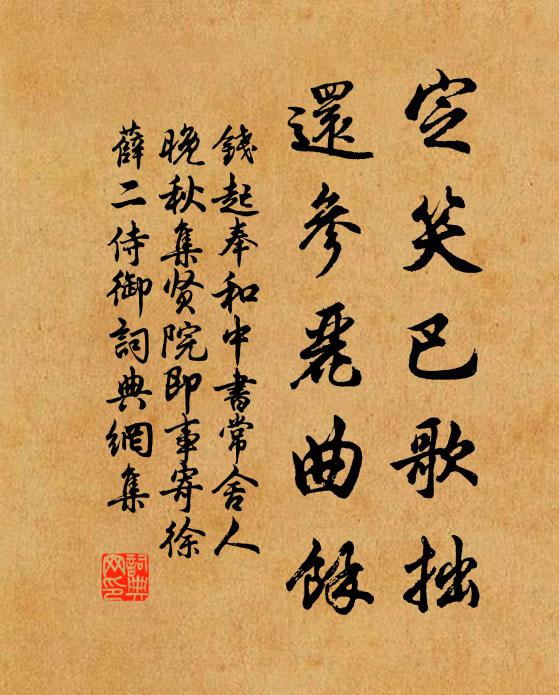 定笑巴歌拙
還參麗曲餘
錢起奉和中書常舍人
晚秋集贤院即事寄徐
薛二侍御詞典網集
詞典网印